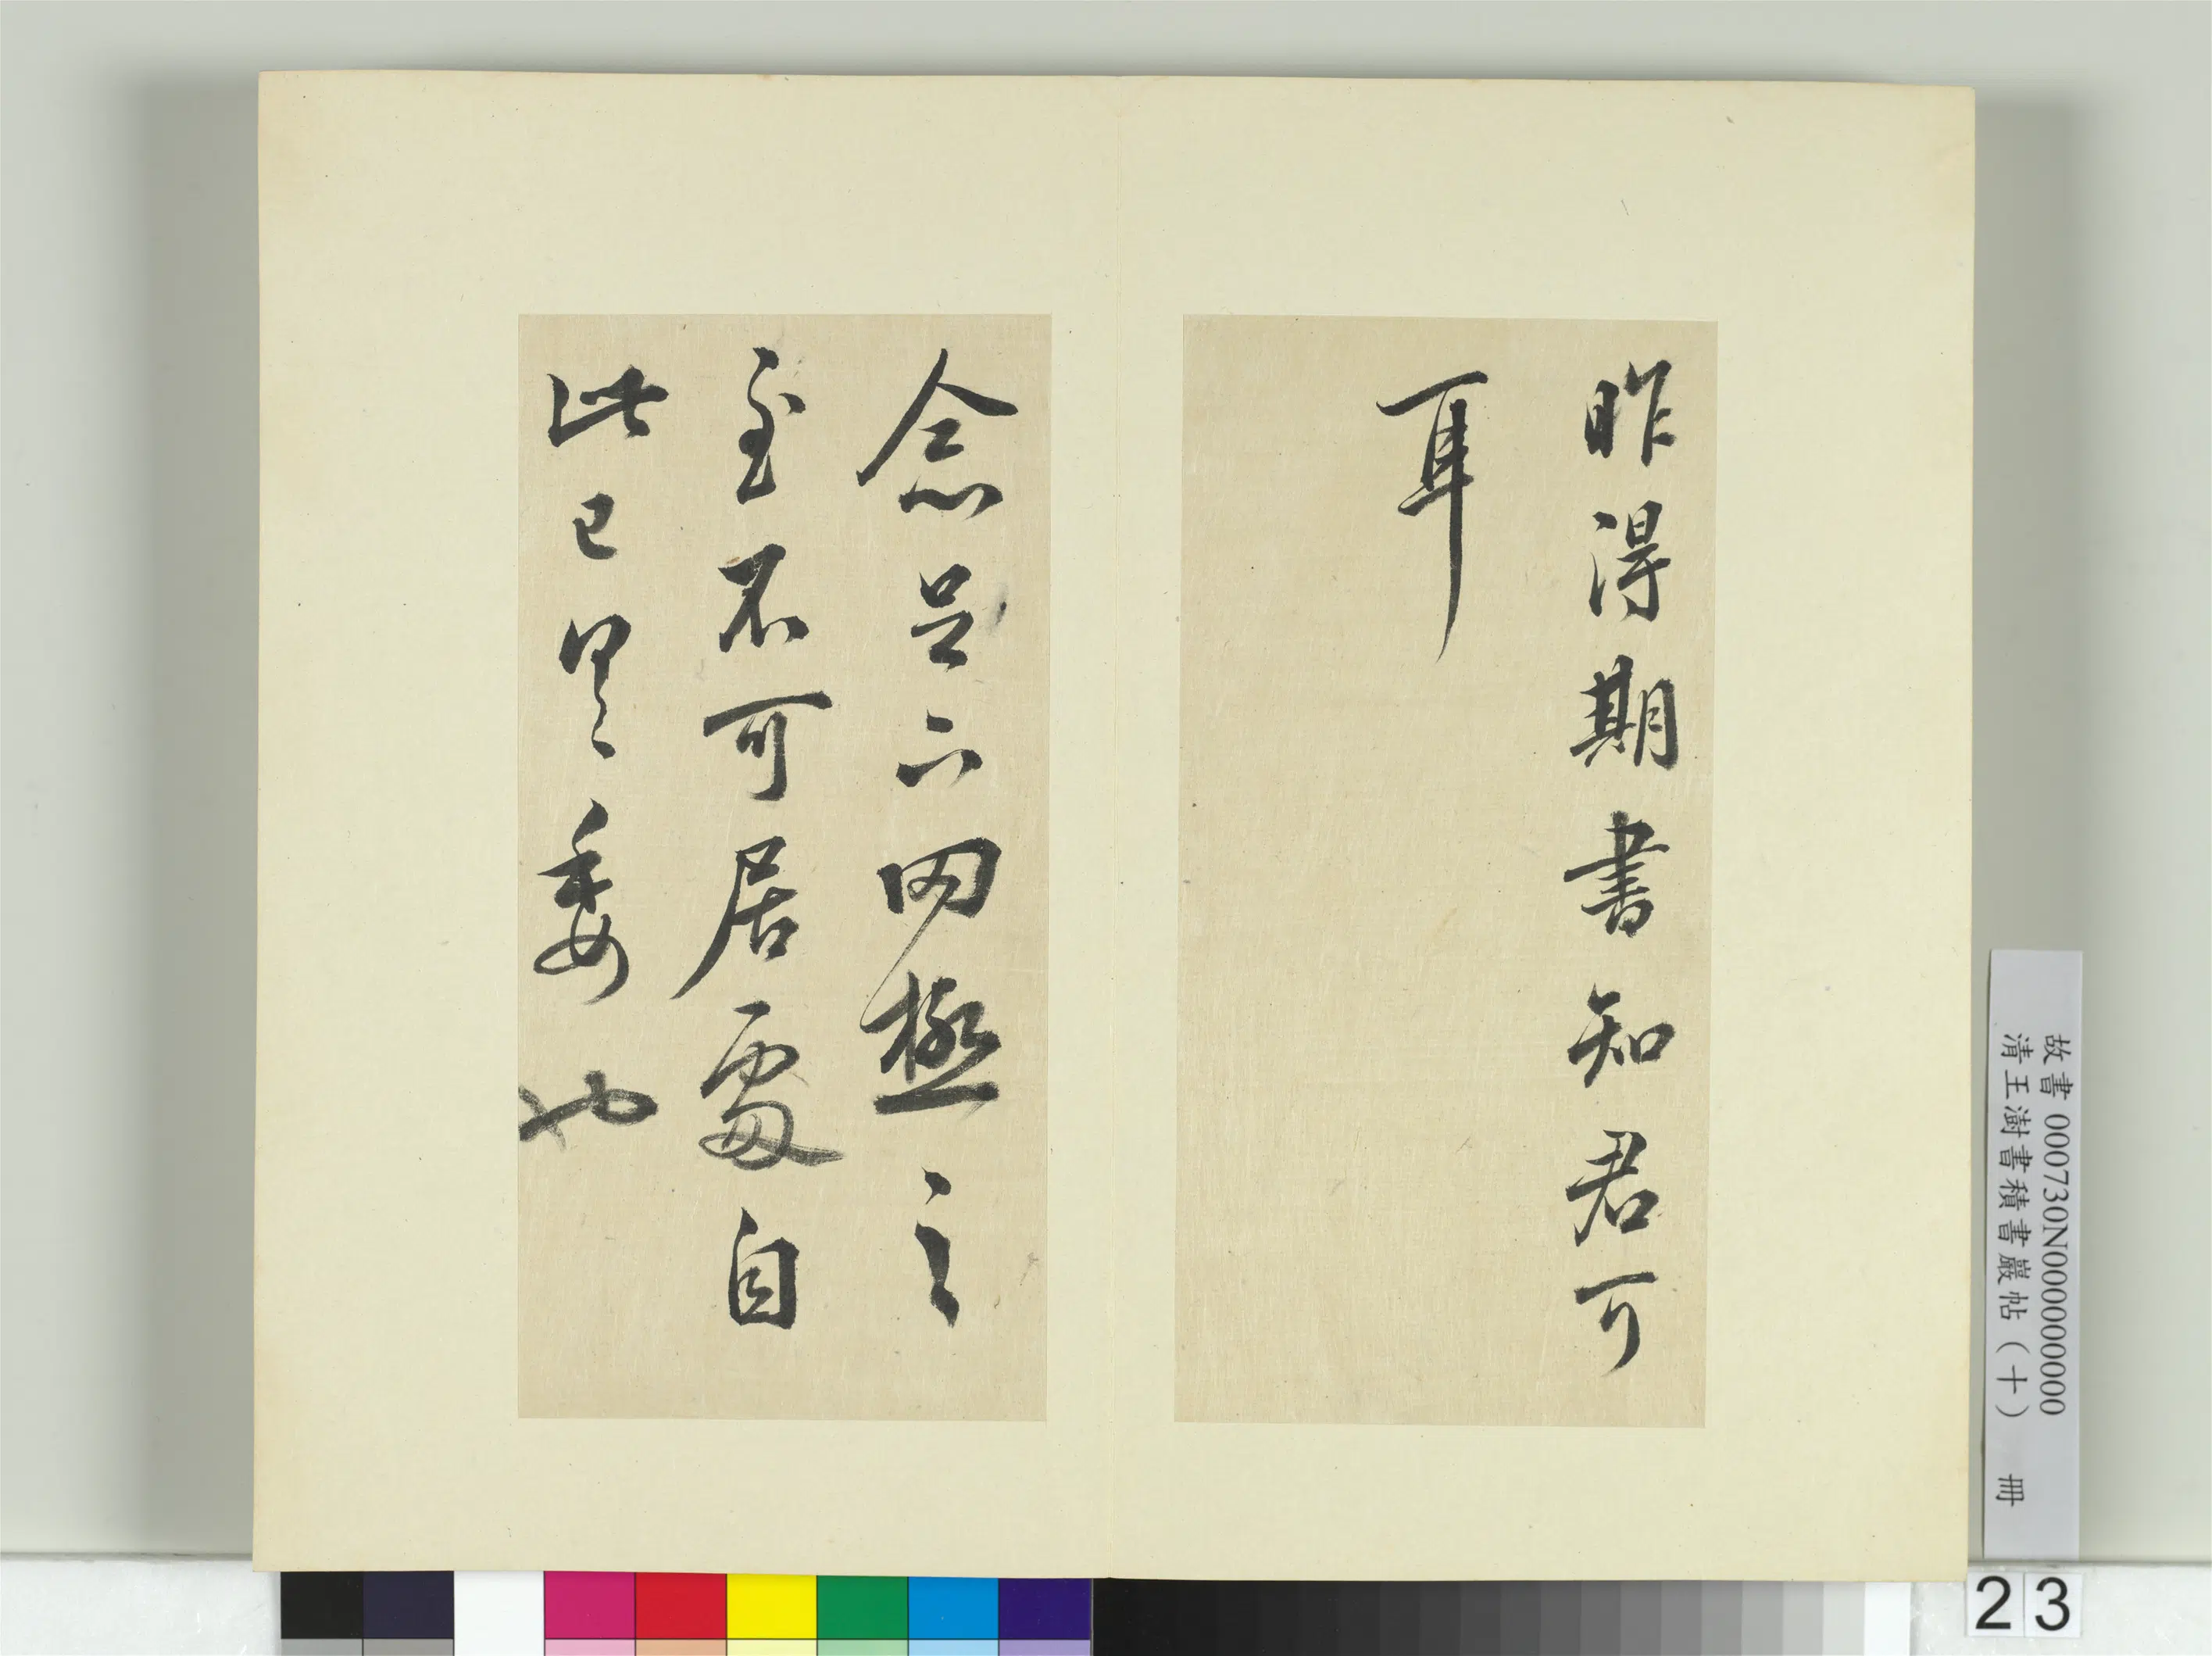 昨得期書知君可
耳
念足下罔極之
至不可居處自
此已委也
故書 000730N000000000
清王澍書積書巖帖(十) 冊
23